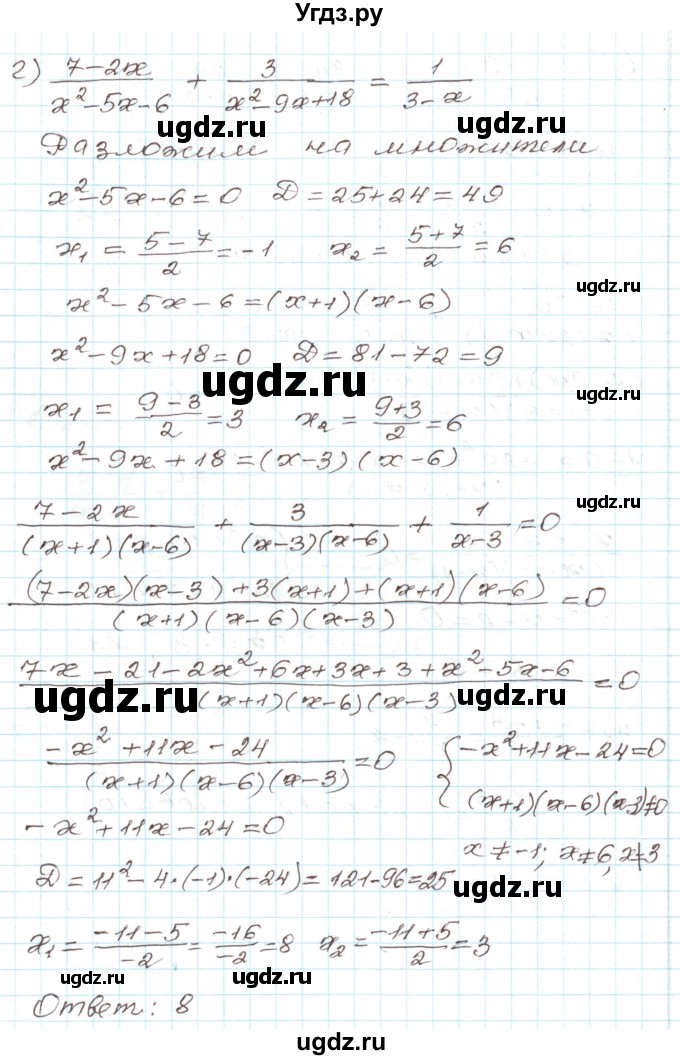 Угдз.ру
г) (7-2x)/(x²-5x-6) + 3/(x²-9x+18) = 1/(3-x)
ugdz.ru ugdz.ru
Разложим на множители
x²-5x-6=0 D=25+24=49
x₁ = (5-7)/2 = -1 x₂ = (5+7)/2 = 6
ugdz.ru
x²-5x-6=(x+1)(x-6)
x²-9x+18=0 D=81-72=9
ugdz.ru
x₁ = (9-3)/2 = 3 x₂ = (9+3)/2 = 6
ugdz.ru
x²-9x+18=(x-3)(x-6)
ugdz.ru
(7-2x)/((x+1)(x-6)) + 3/((x-3)(x-6)) + 1/(x-3) = 0
((7-2x)(x-3)+3(x+1)+(x+1)(x-6))/((x+1)(x-6)(x-3)) = 0
(7x-21-2x²+6x+3x+3+x²-5x-6)/((x+1)(x-6)(x-3)) = 0
ugdz.ru ugdz.ru
(-x²+11x-24)/((x+1)(x-6)(x-3)) = 0 { -x²+11x-24=0
(x+1)(x-6)(x-3)≠0
-x²+11x-24=0
x≠-1; x≠6, x≠3
D=11²-4·(-1)·(-24)=121-96=25
ugdz.ru
x₁ = (-11-5)/-2 = -16/-2 = 8 x₂ = (-11+5)/2 = 3
ugdz.ru ugdz.ru ugdz.ru
Ответ: 8
ugdz.ru